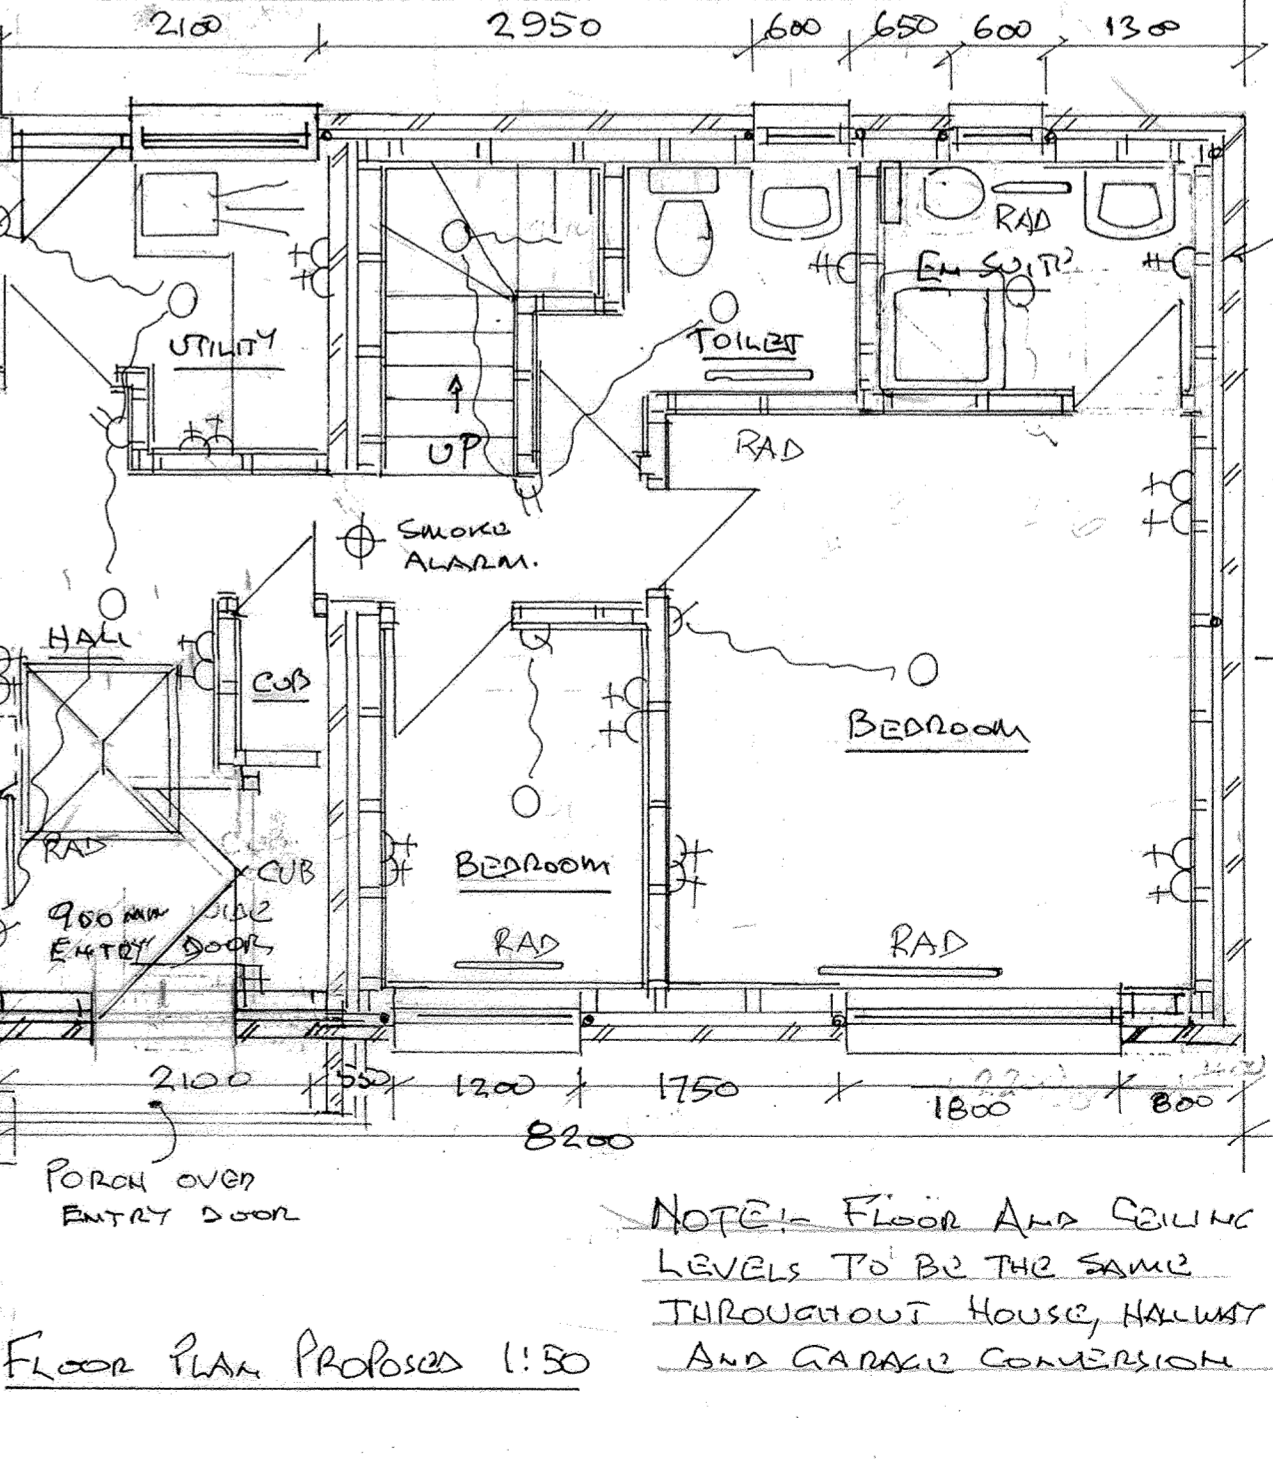 2100 2950 600 650 600 1300
RAD
EN SUITE
UTILITY
TOILET
UP
RAD
SMOKE
ALARM.
HALL
CUB
BEDROOM
RAD
CUB
BEDROOM
900 MM WIDE
ENTRY DOOR
RAD
RAD
2100 550 1200 1750 1800 800
8200
PORCH OVER
ENTRY DOOR
NOTE:- FLOOR AND CEILING
LEVELS TO BE THE SAME
THROUGHOUT HOUSE, HALLWAY
AND GARAGE CONVERSION
FLOOR PLAN PROPOSED 1:50